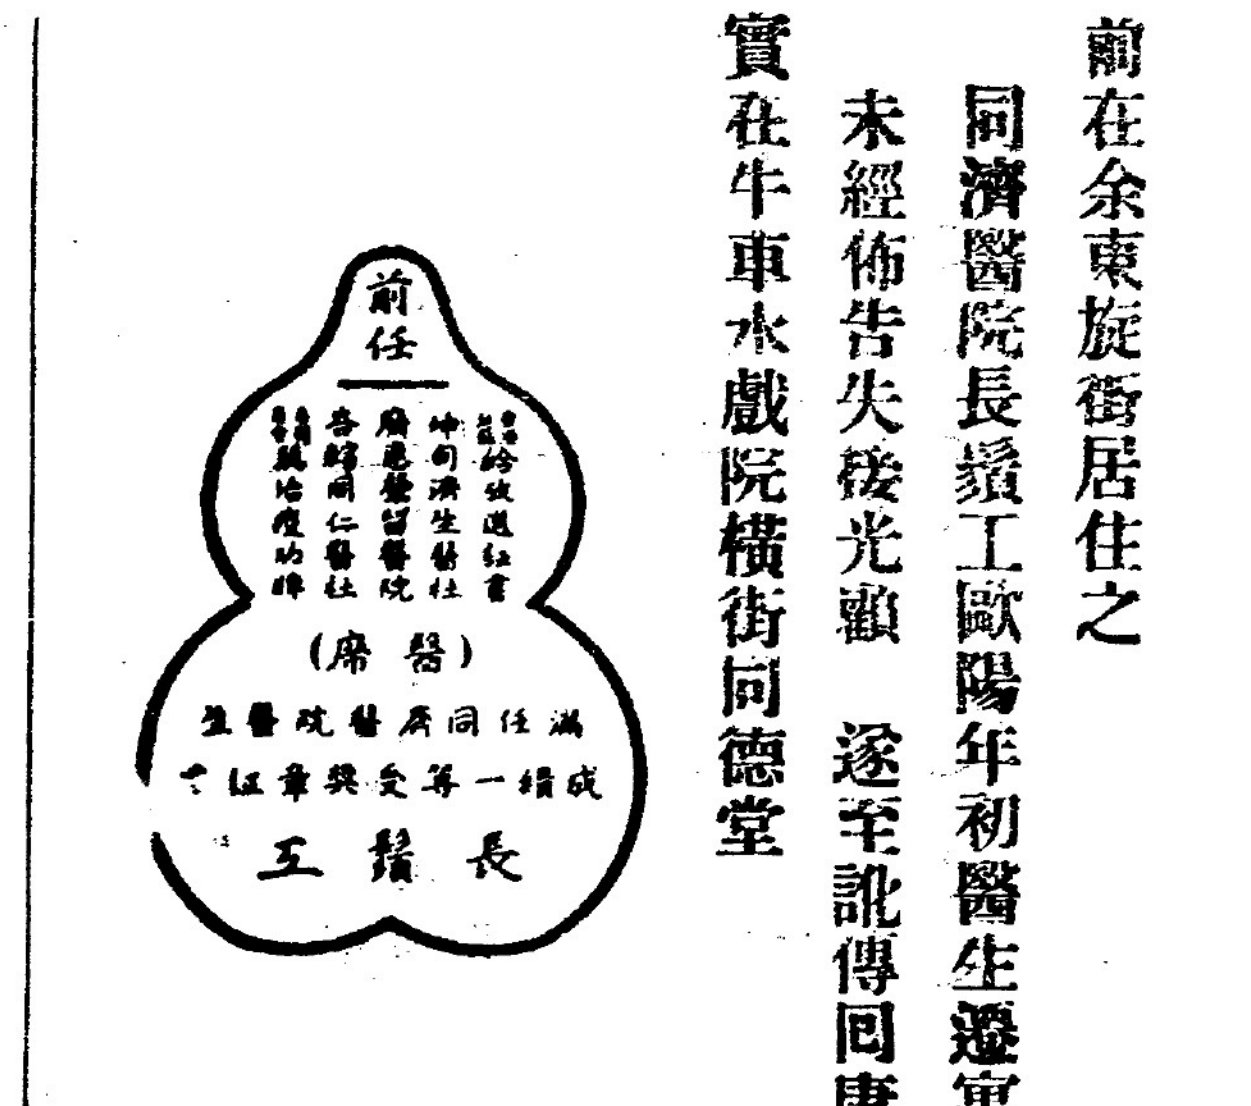 前在余東旋街居住之
同濟醫院長鬚工歐陽年初醫生遷寓
未經佈告失接光顧 遂至訛傳回唐
實在牛車水戲院橫街同德堂
前任
坤甸濟生醫社
廣惠肇留醫院
吞轄同仁醫社
(醫席)
滿任同濟醫院醫生
成績一等受獎章証
長鬚工